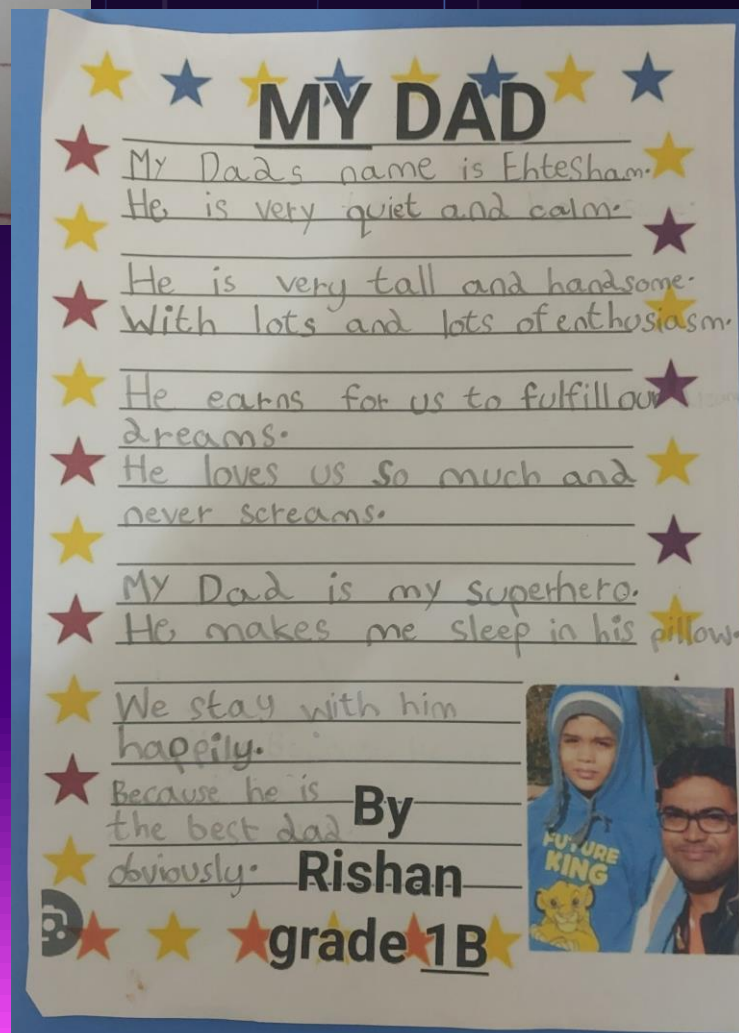 MY DAD
My Dads name is Ehtesham.
He is very quiet and calm.
He is very tall and handsome.
With lots and lots of enthusiasm.
He earns for us to fulfill our
dreams.
He loves us so much and
never screams.
My Dad is my superhero.
He makes me sleep in his pillow.
We stay with him
happily.
Because he is
the best dad
obviously.
By
Rishan
grade 1B
FUTURE
KING